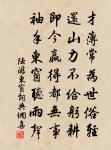 才薄常為世俗輕
還山力不給躬耕
即今贏得都無事
袖手東窗聽雨聲
陸游東窗詞典網書